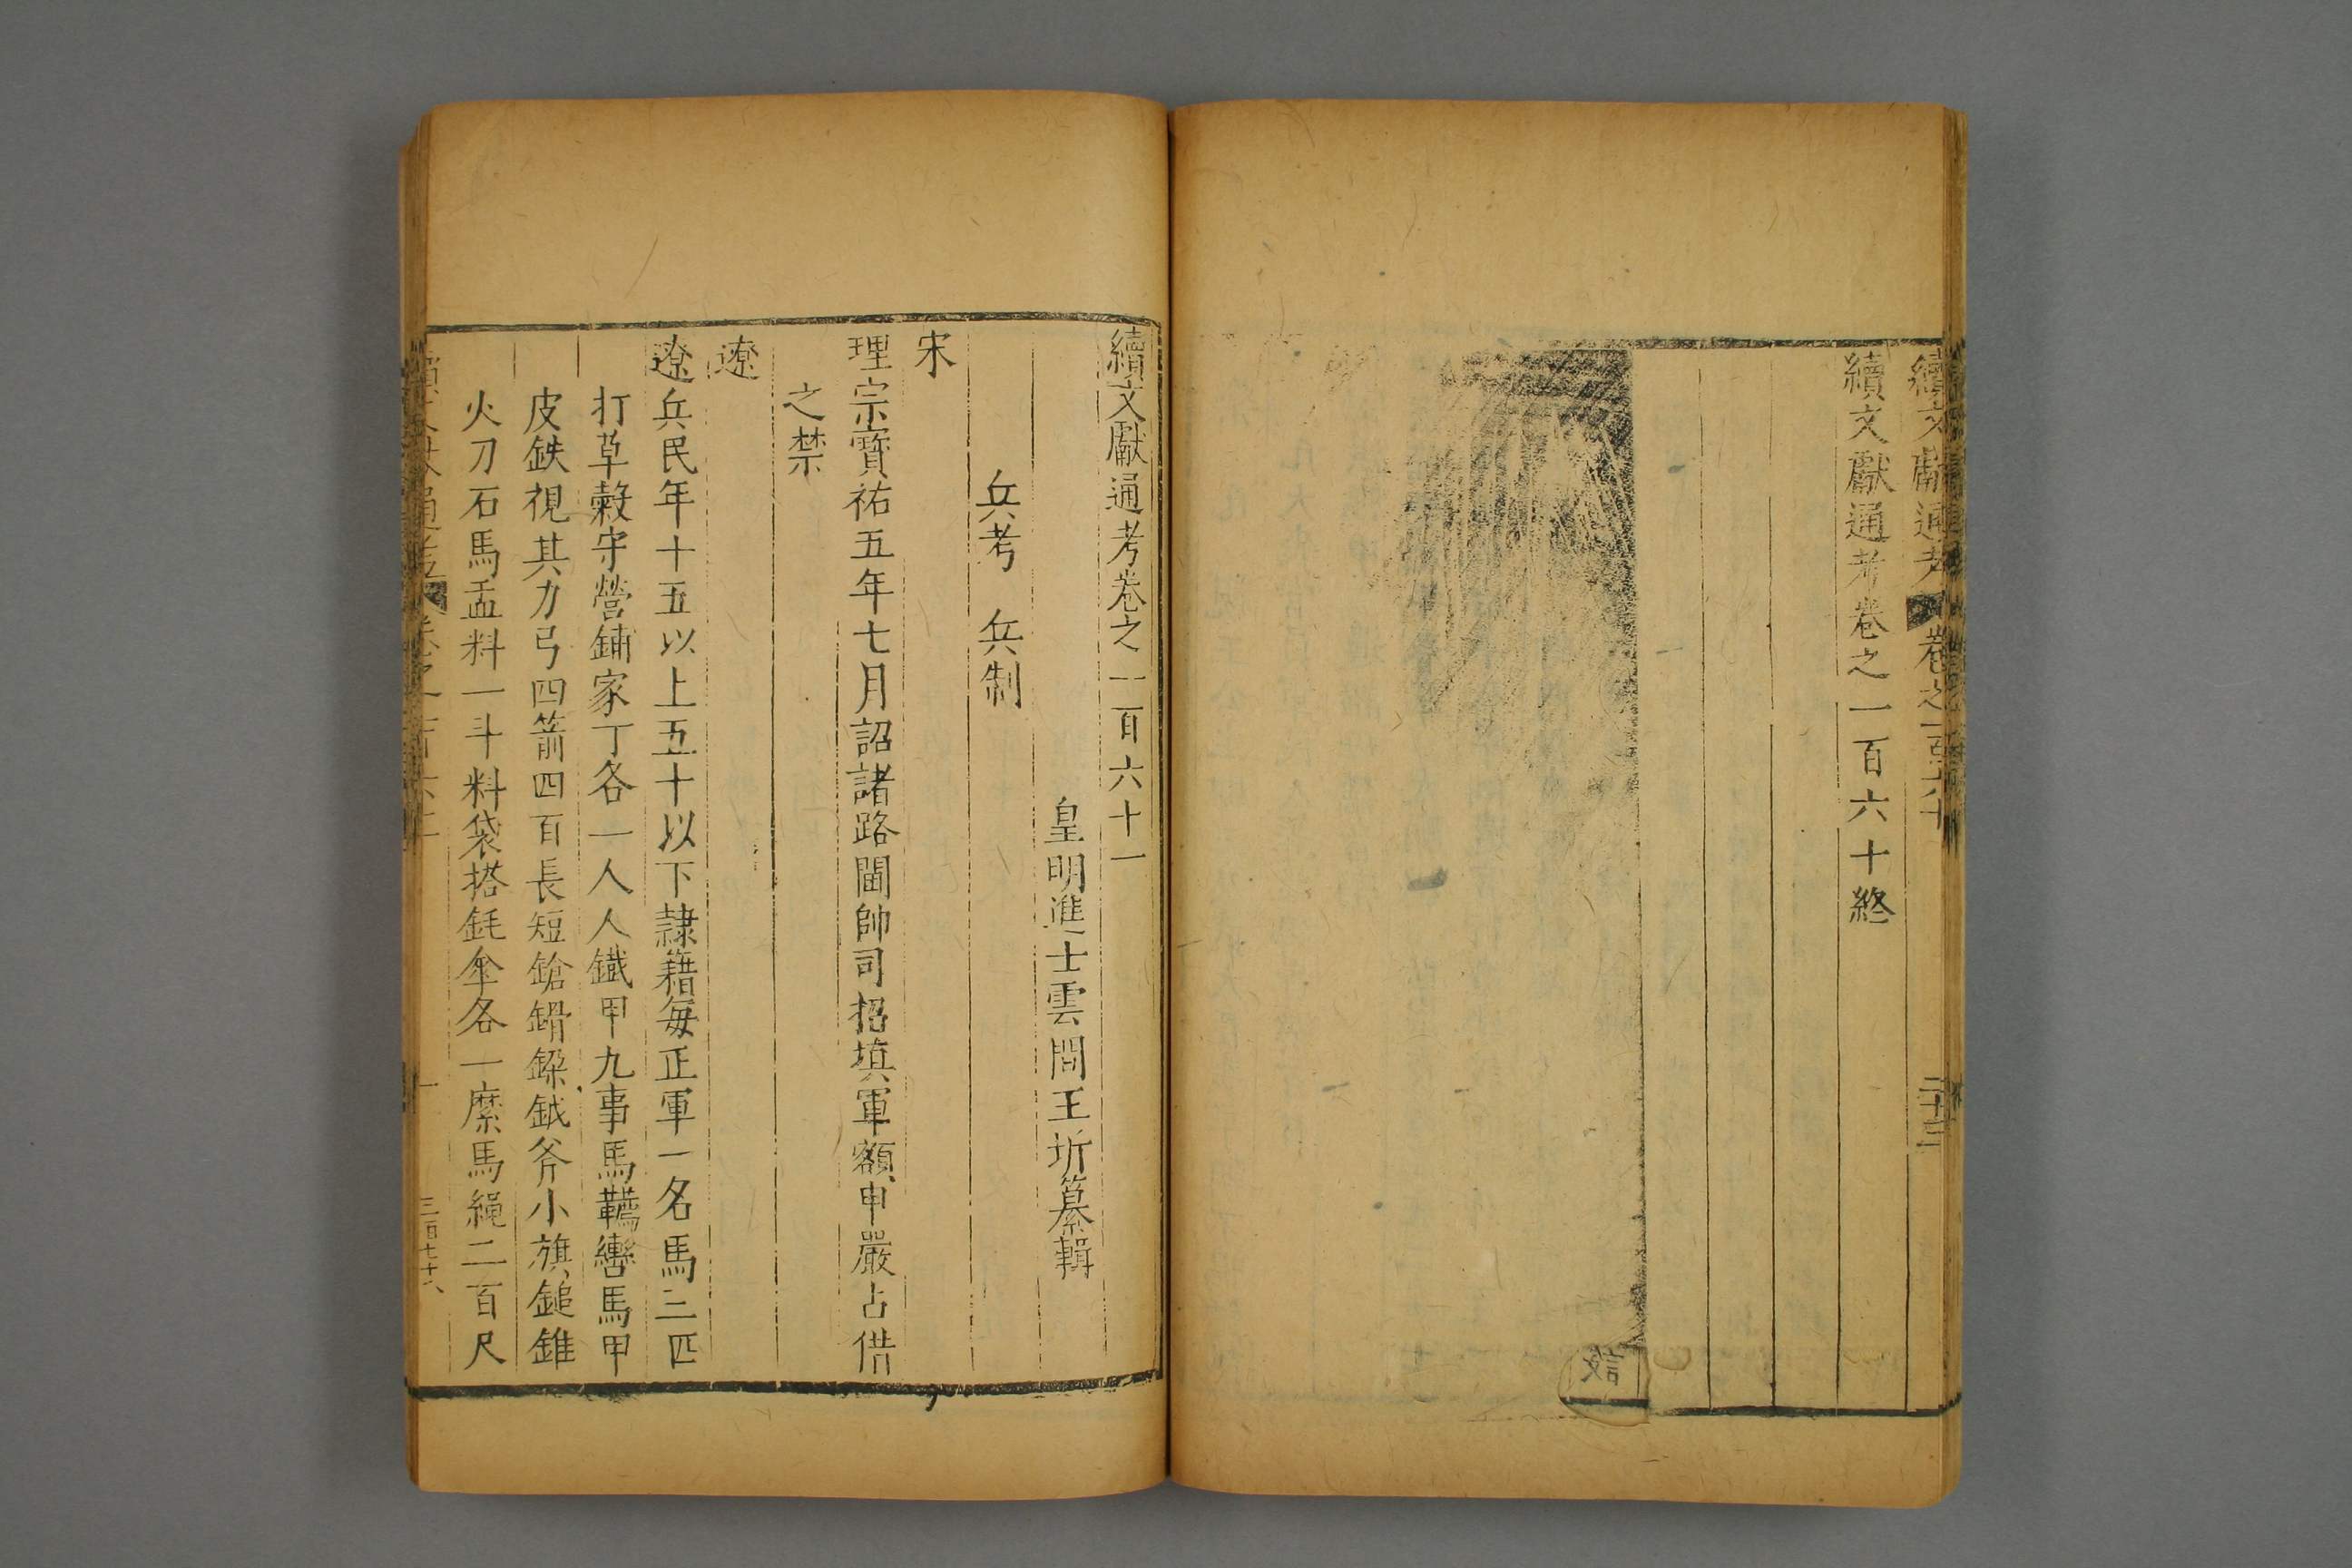 續文獻通考 卷之一百六十 二十三
續文獻通考卷之一百六十終
續文獻通考卷之一百六十一
皇明進士雲間王圻纂輯
兵考 兵制
宋
理宗寶祐五年七月詔諸路閫帥司招填軍額申嚴占借
之禁
遼
遼兵民年十五以上五十以下隷籍每正軍一名馬三匹
打草穀守營鋪家丁各一人人鐵甲九事馬韉轡馬甲
皮鉄視其力弓四箭四百長短鎗䤘鏫鉞斧小旗鎚錐
火刀石馬盂料一斗料袋搭𨧨傘各一縻馬繩二百尺
通考 卷之一百六十一 一 三百七十八